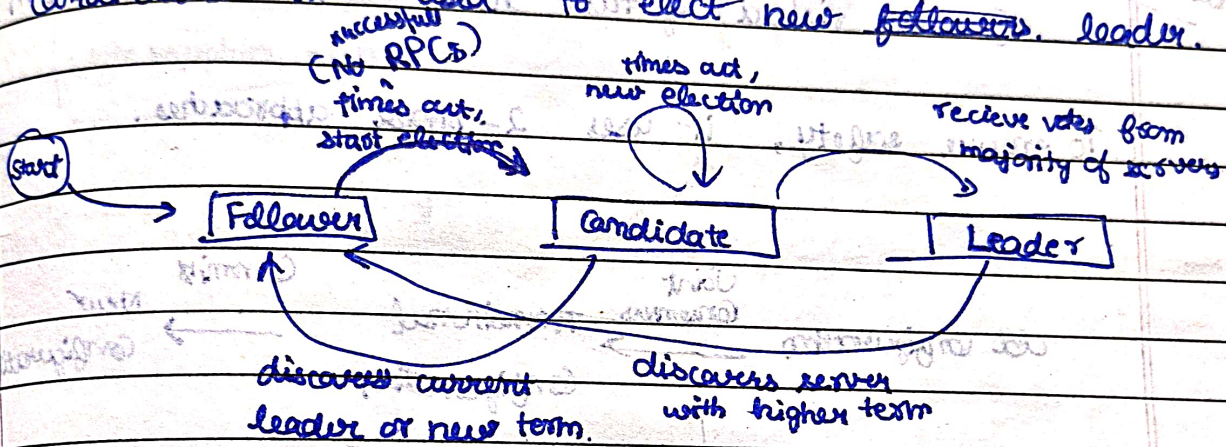 to elect new followers. leader.
successful
(No RPCs)
times out,
start election
times out,
new election
recieve votes from
majority of servers
start
Follower
Candidate
Leader
discovers current
leader or new term.
discovers server
with higher term